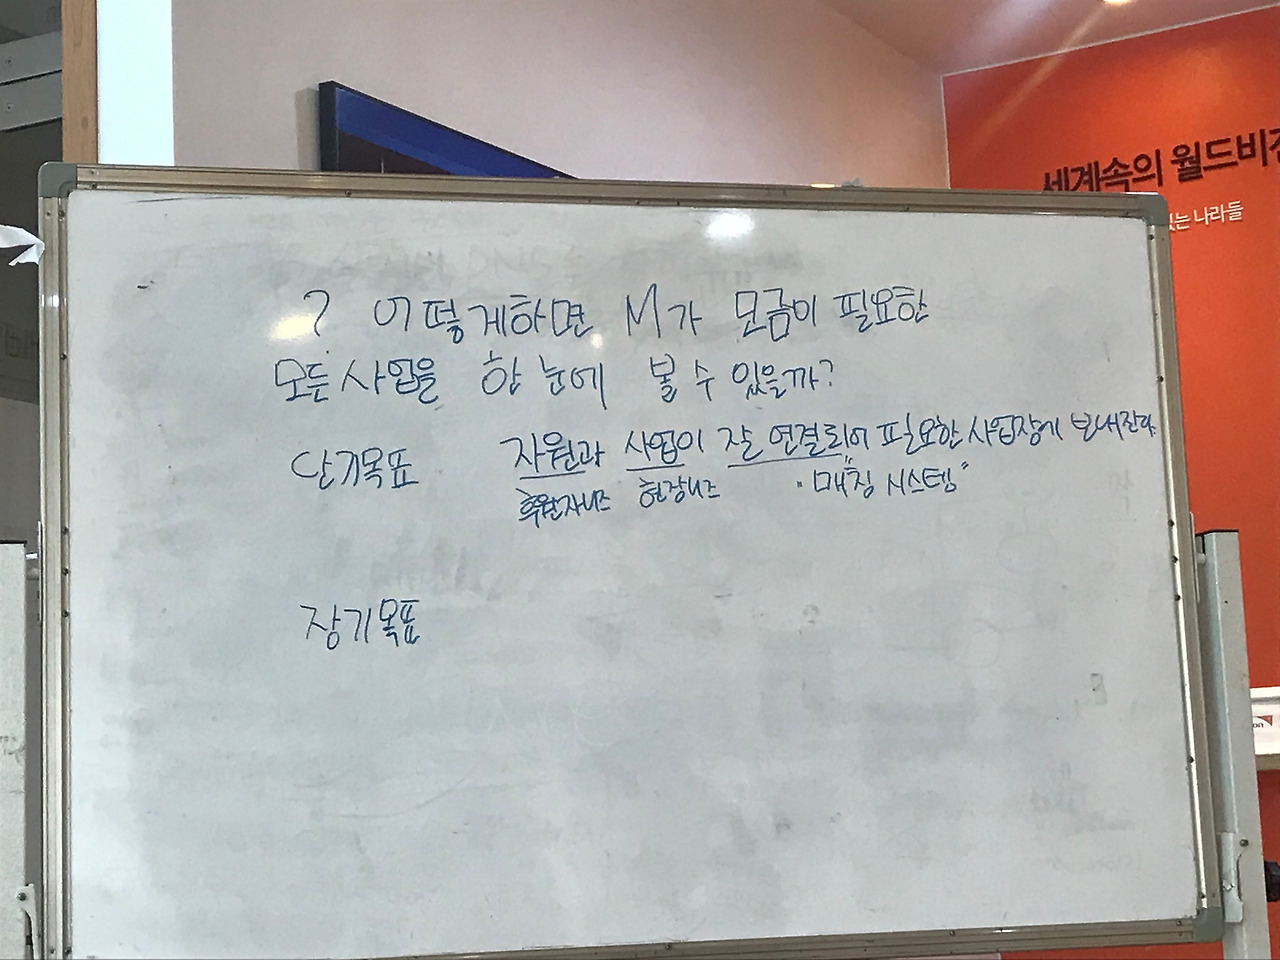 세계속의 월드비전
있는 나라들
? 어떻게하면 M가 모금이 필요한
모든 사업을 한 눈에 볼 수 있을까?
단기목표 자원과 사업이 잘 연결되어 필요한 사업장에 보내진다.
후원자니즈 현장니즈 "매칭 시스템"
장기목표